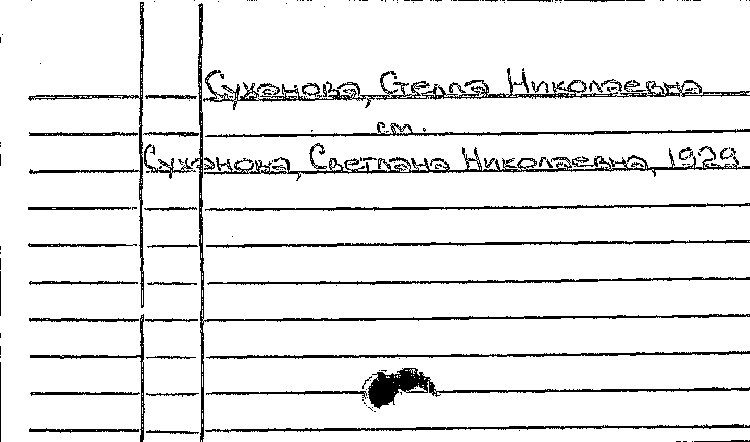 Суханова, Стелла Николаевна
см.
Суханова, Светлана Николаевна, 1929